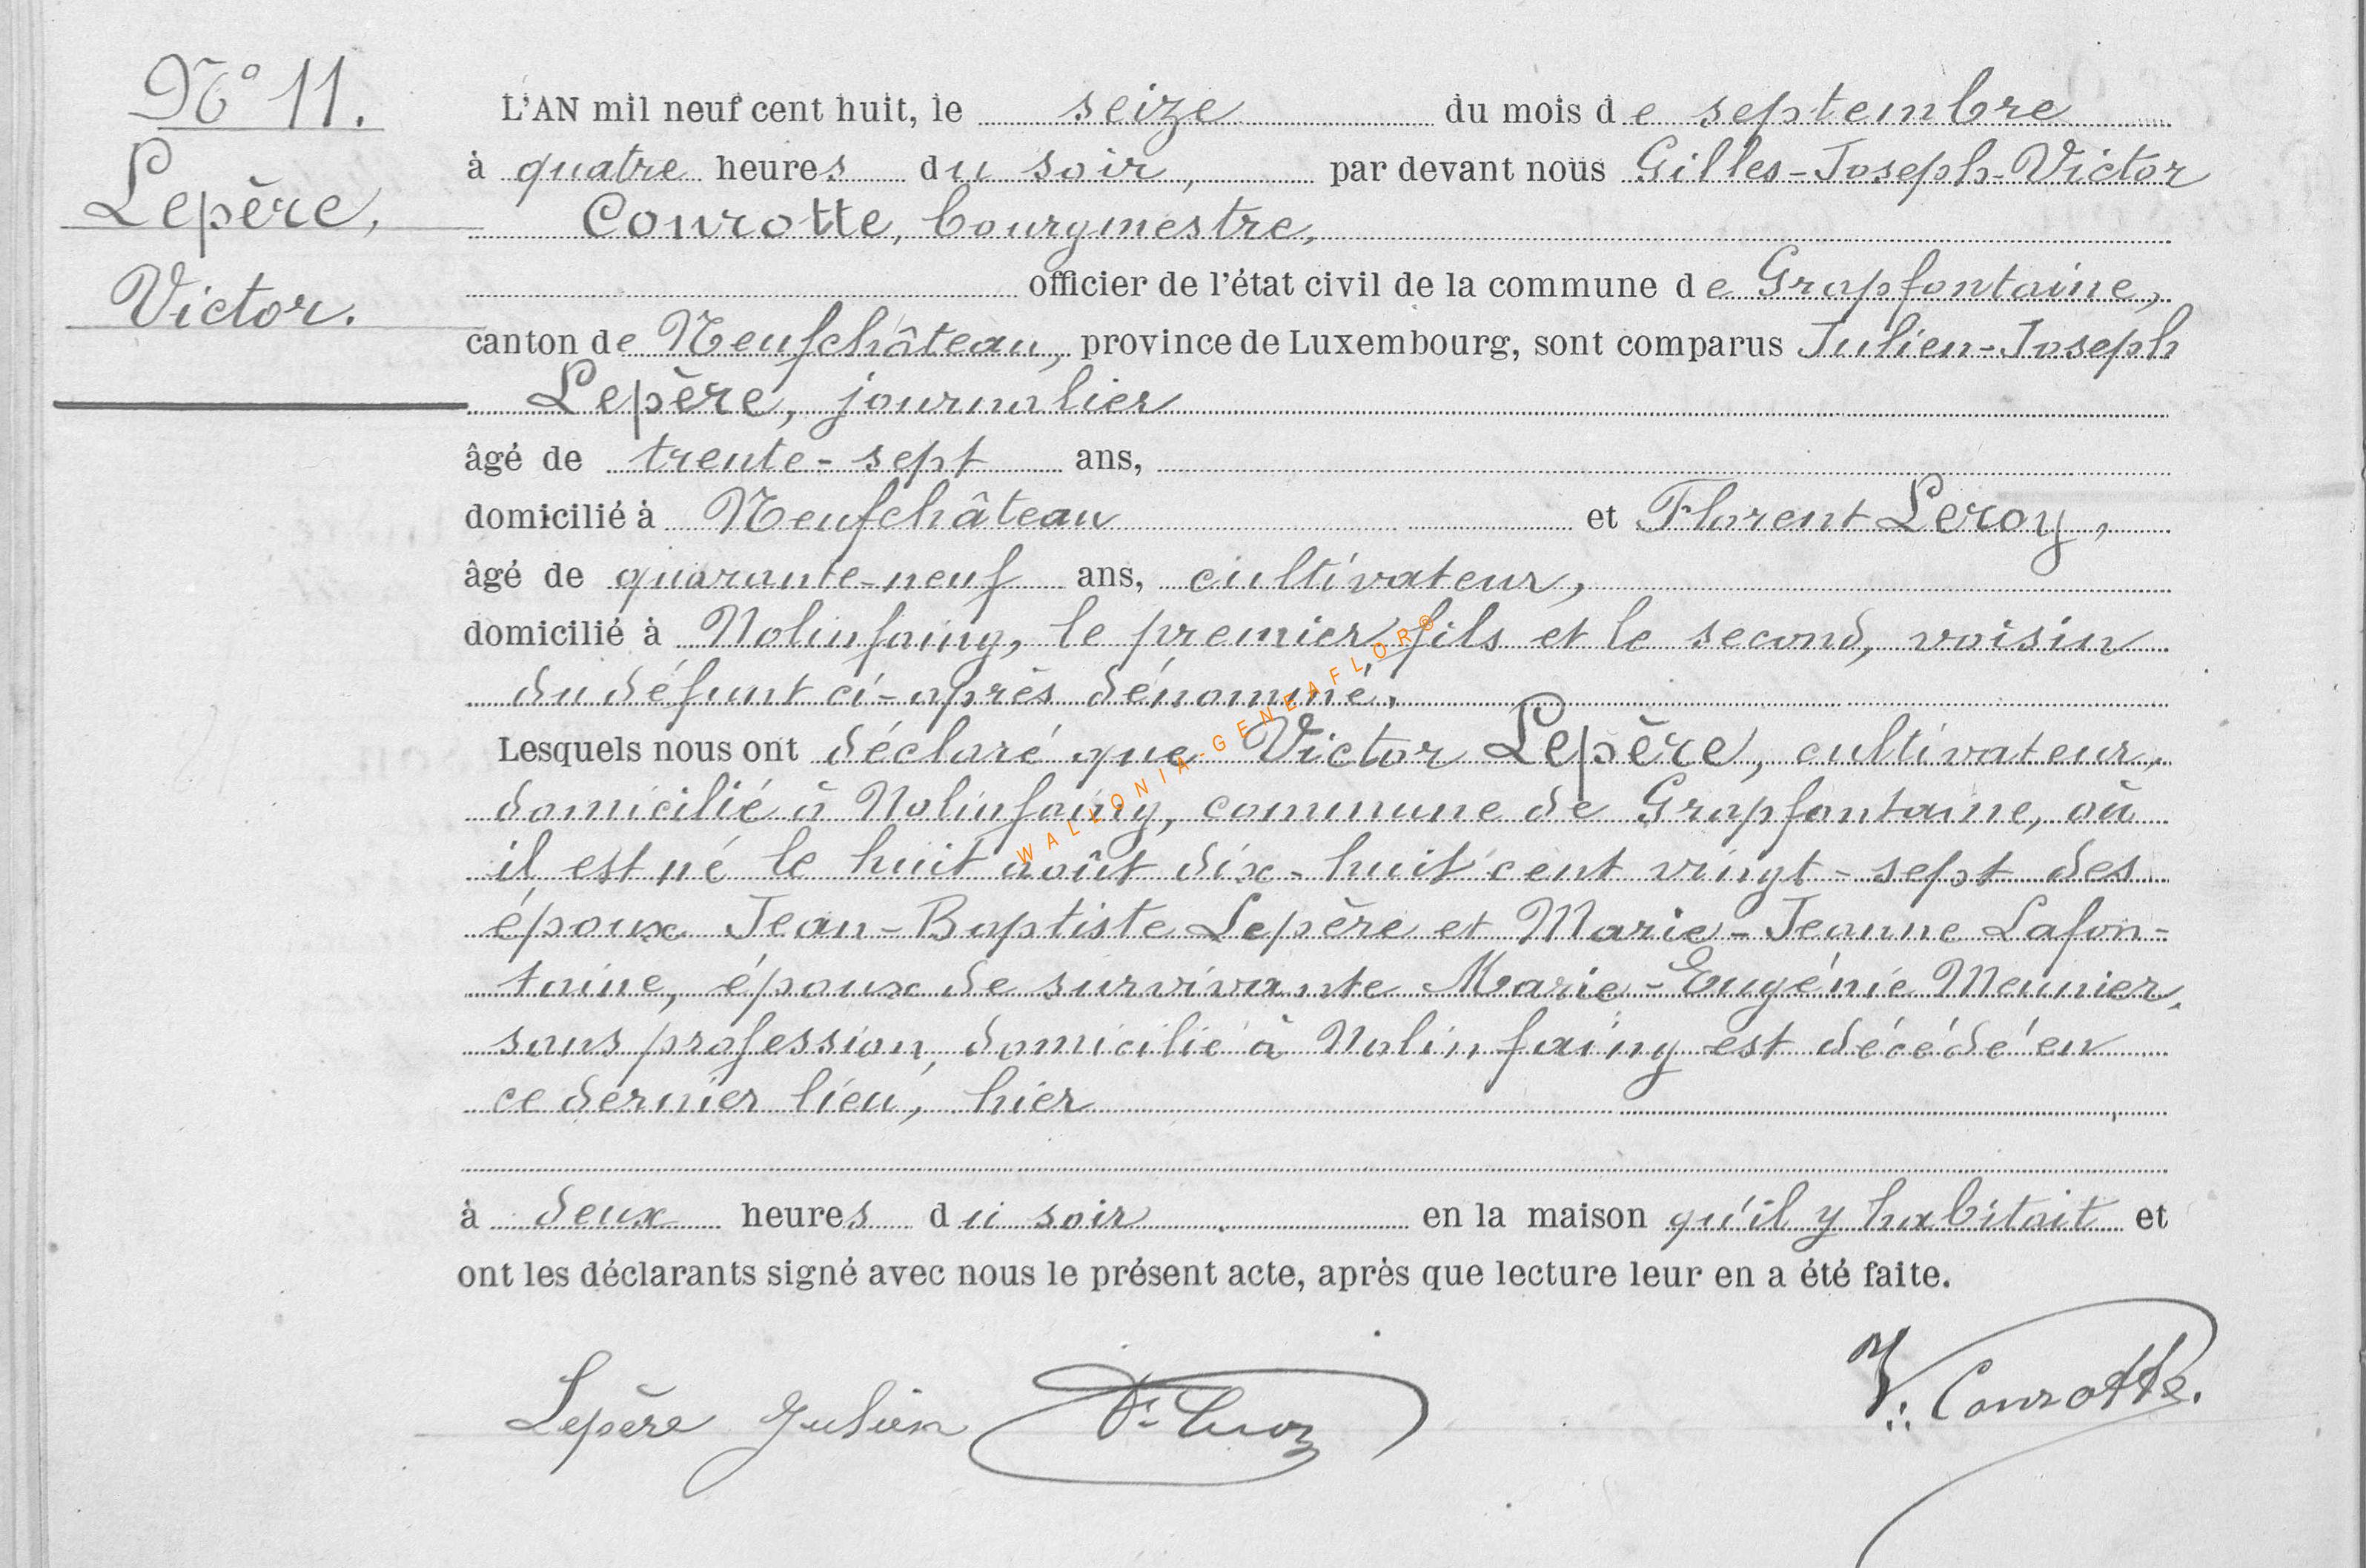 N° 11.
Lepère,
Victor.
L'AN mil neuf cent huit, le seize du mois de septembre
à quatre heures du soir, par devant nous Gilles-Joseph-Victor
Conrotte, bourgmestre,
officier de l'état civil de la commune de Grapfontaine,
canton de Neufchâteau, province de Luxembourg, sont comparus Julien-Joseph
Lepère, journalier
âgé de trente-sept ans,
domicilié à Neufchâteau et Florent Leroy,
âgé de quarante-neuf ans, cultivateur,
domicilié à Nolinfaing, le premier fils et le second, voisin
du défunt ci-après dénommé.
Lesquels nous ont déclaré que Victor Lepère, cultivateur,
domicilié à Nolinfaing, commune de Grapfontaine, où
il est né le huit août dix-huit cent vingt-sept des
époux Jean-Baptiste Lepère et Marie-Jeanne Lafon-
taine, époux de survivante Marie-Eugénie Meunier,
sans profession, domicilié à Nolinfaing est décédé en
ce dernier lieu, hier
à deux heures du soir en la maison qu'il y habitait et
ont les déclarants signé avec nous le présent acte, après que lecture leur en a été faite.
Lepère Julien F. Leroy V. Conrotte.
WALLONIA-GENEAFLOR®